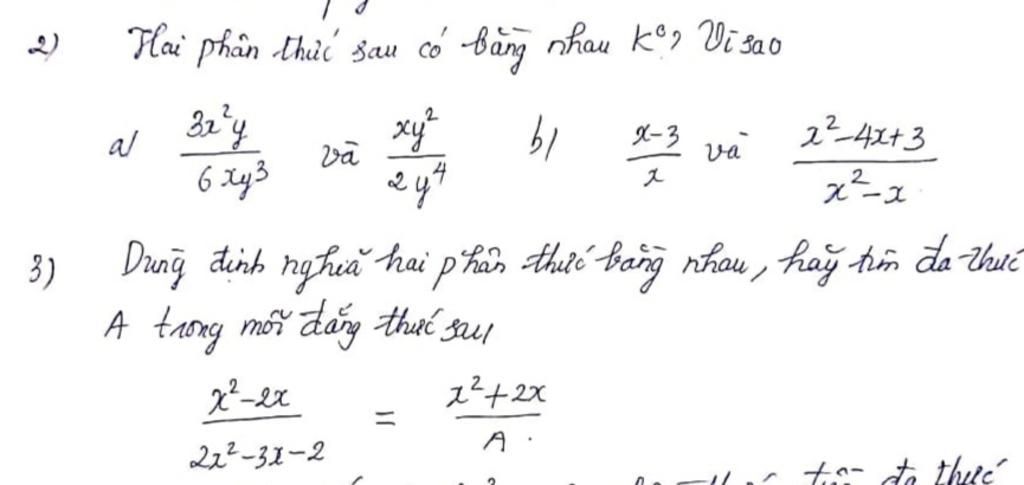 2) Hai phân thức sau có bằng nhau k°? Vì sao
a/ 3x²y/6xy³ và xy²/2y⁴ b/ x-3/x và x²-4x+3/x²-x
3) Dùng định nghĩa hai phân thức bằng nhau, hãy tìm đa thức
A trong mỗi đẳng thức sau
x²-2x/2x²-3x-2 = x²+2x/A.